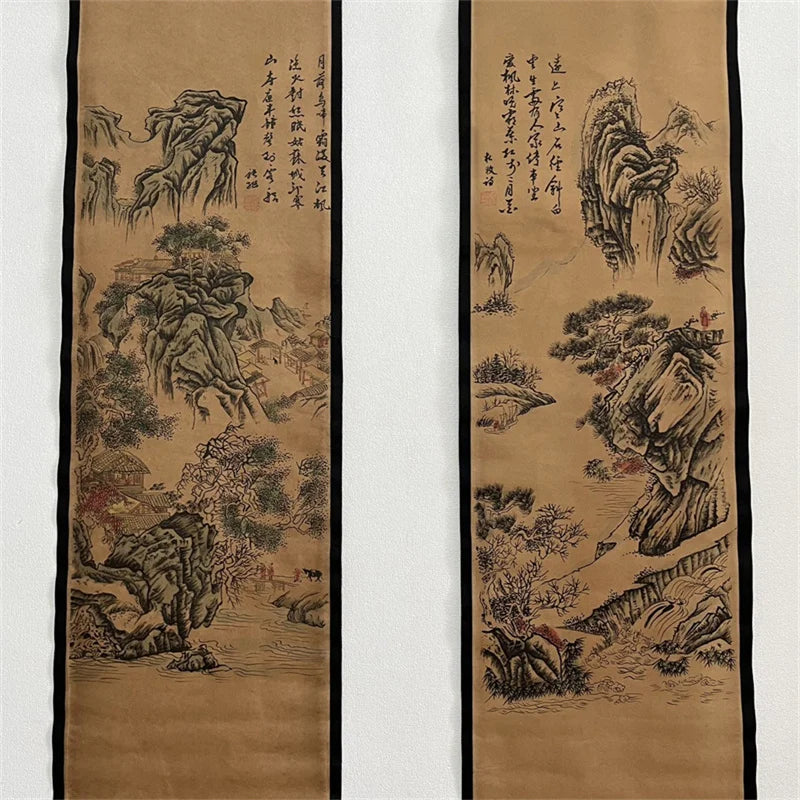 月落烏啼霜滿天江楓
漁火對愁眠姑蘇城外寒
山寺夜半鐘聲到客船
張繼
遠上寒山石徑斜白
雲生處有人家停車坐
愛楓林晚霜葉紅於二月花
杜牧詩